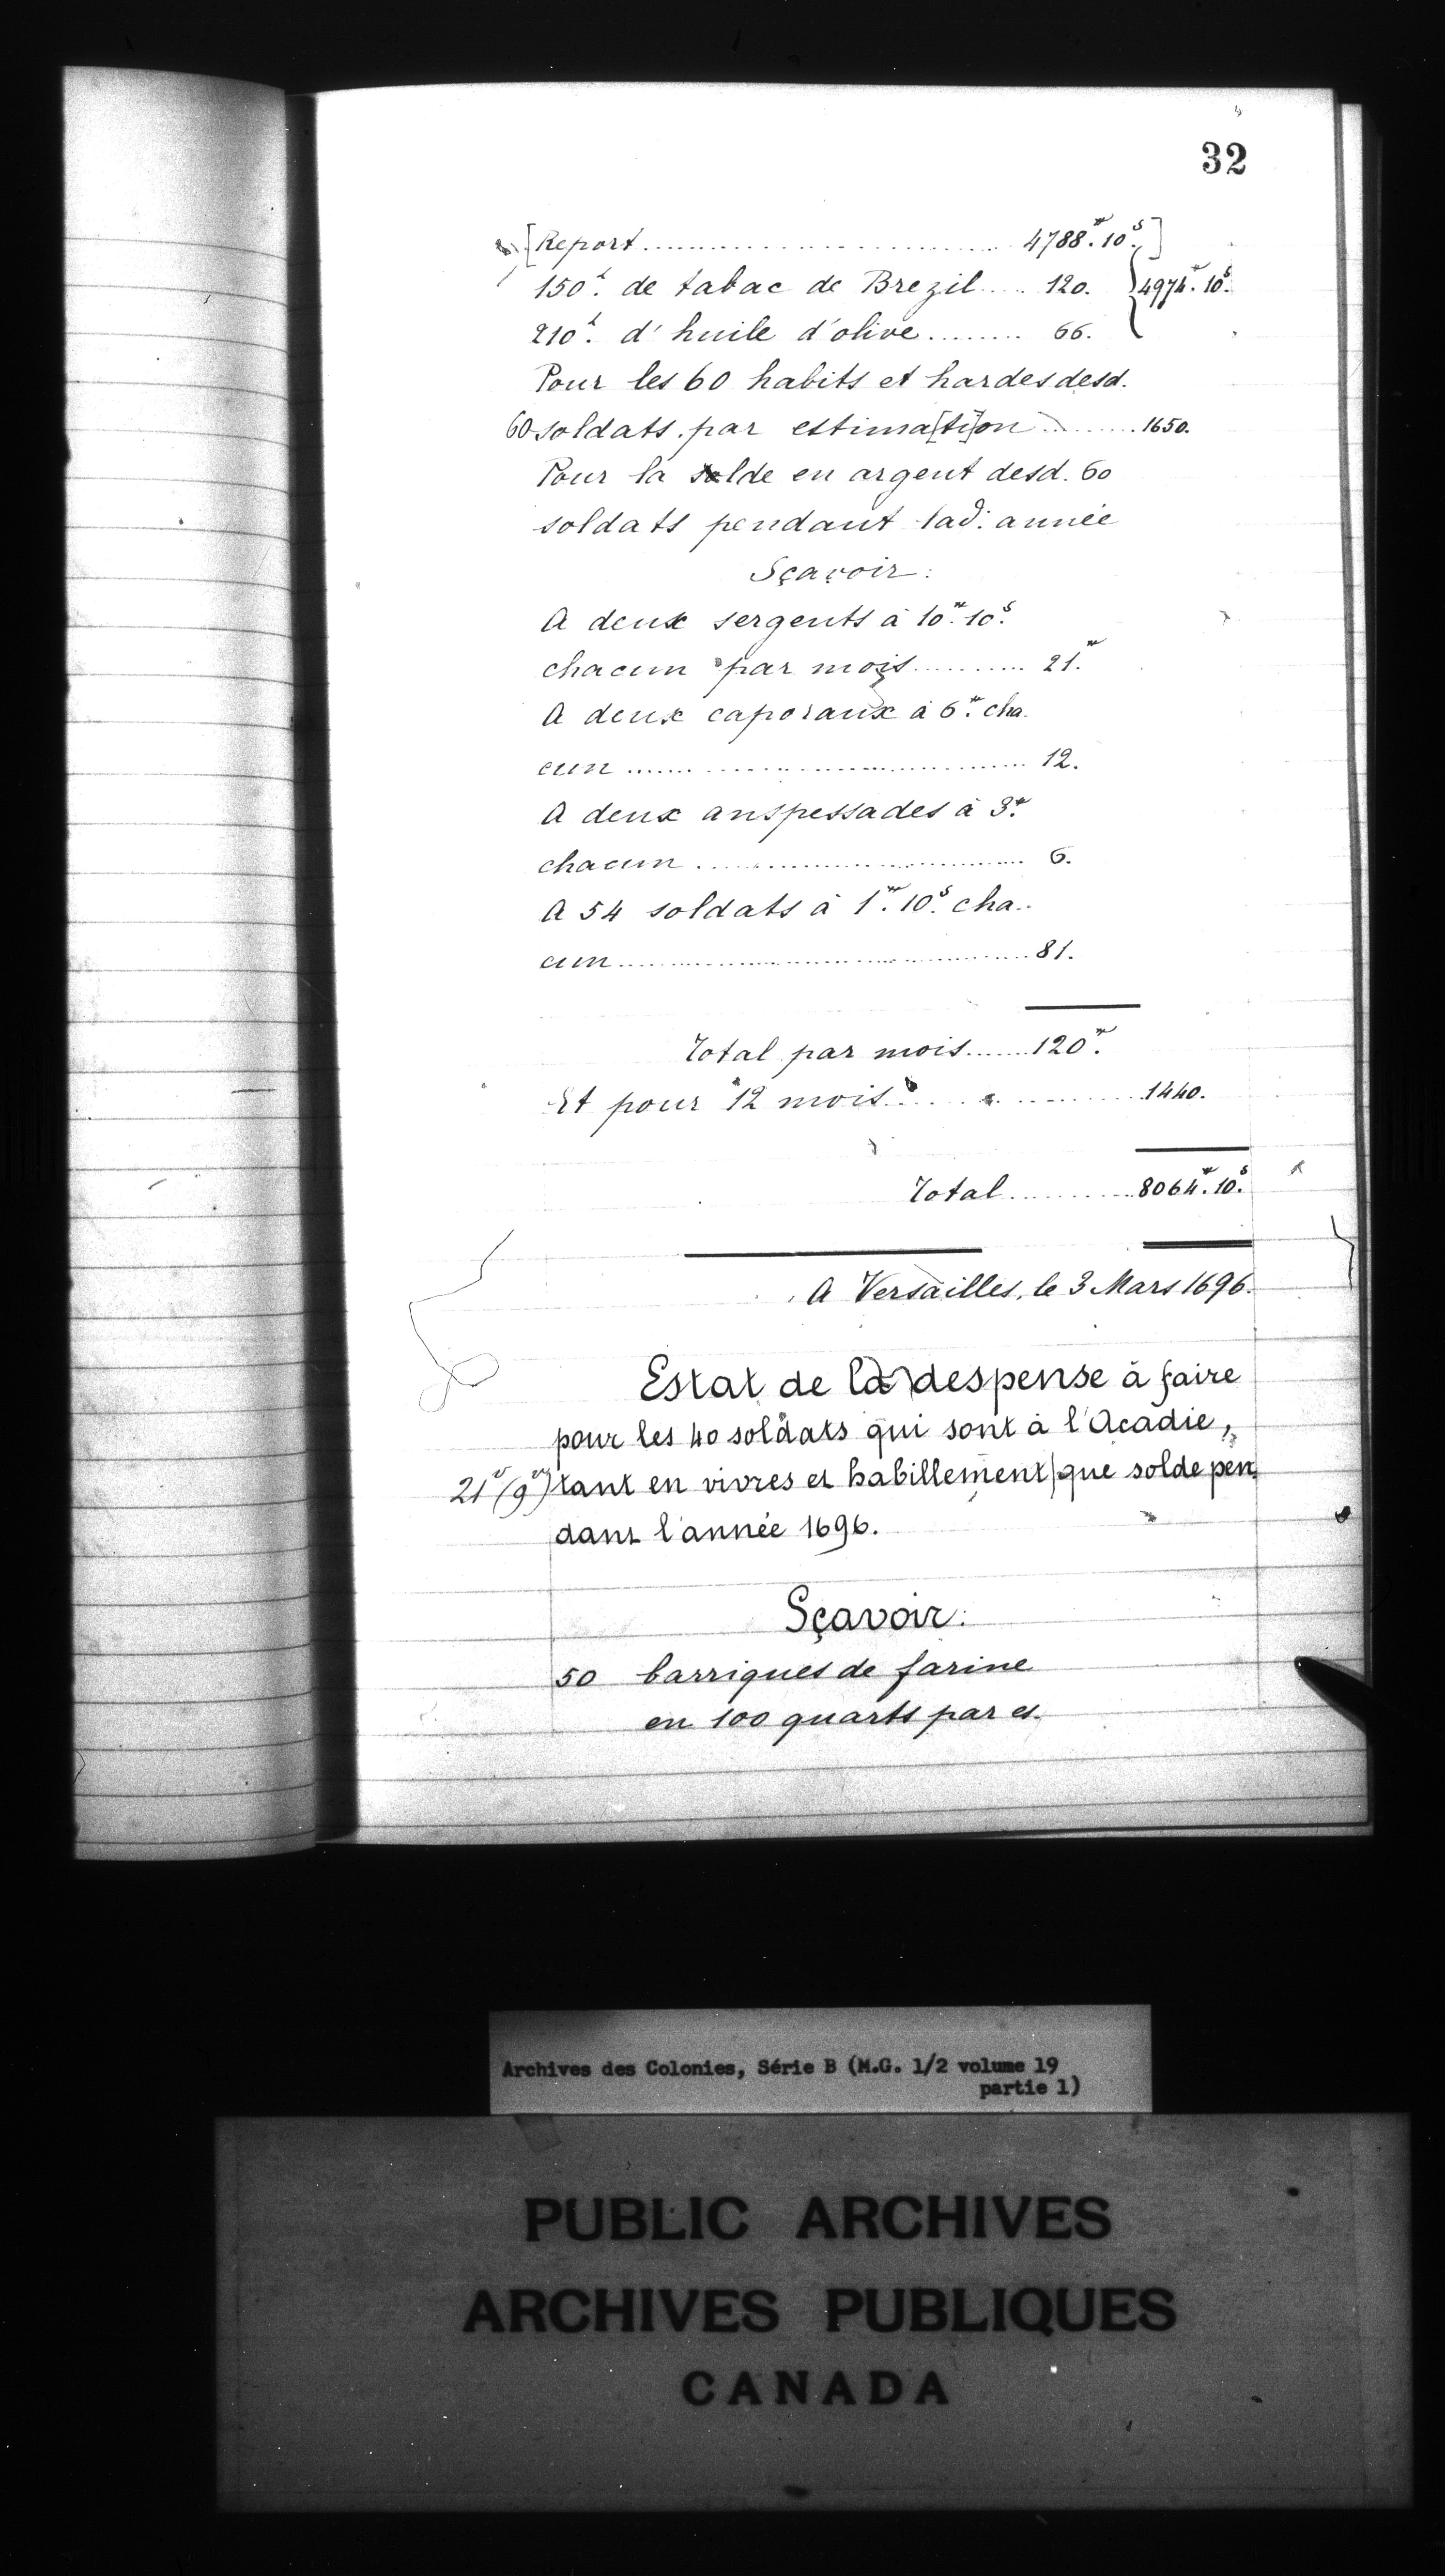 32
[Report ........ 4788.tt 10.s]
150.l de tabac de Brezil .... 120. } 4974.tt 10.s
210.l d'huile d'olive ........ 66.
Pour les 60 habits et hardes desd.
60 soldats par estima[ti]on ........ 1650.
Pour la solde en argent desd. 60
soldats pendant lad. année
Sçavoir:
A deux sergents à 10.tt 10.s
chacun par mois .......... 21.tt
A deux caporaux à 6.tt cha
cun ........ 12.
A deux anspessades à 3.tt
chacun ........ 6.
A 54 soldats à 1.tt 10.s cha..
cun ........ 81.
Total par mois ....... 120.tt
Et pour 12 mois ........ 1440.
Total .......... 8064.tt 10.s
A Versailles, le 3 Mars 1696.
Estat de la despense à faire
pour les 40 soldats qui sont à l'Acadie,
tant en vivres et habillement que solde pen
dant l'année 1696.
Sçavoir:
50 barriques de farine
en 100 quarts par es.
Archives des Colonies, Série B (M.G. 1/2 volume 19
partie 1)
PUBLIC ARCHIVES
ARCHIVES PUBLIQUES
CANADA